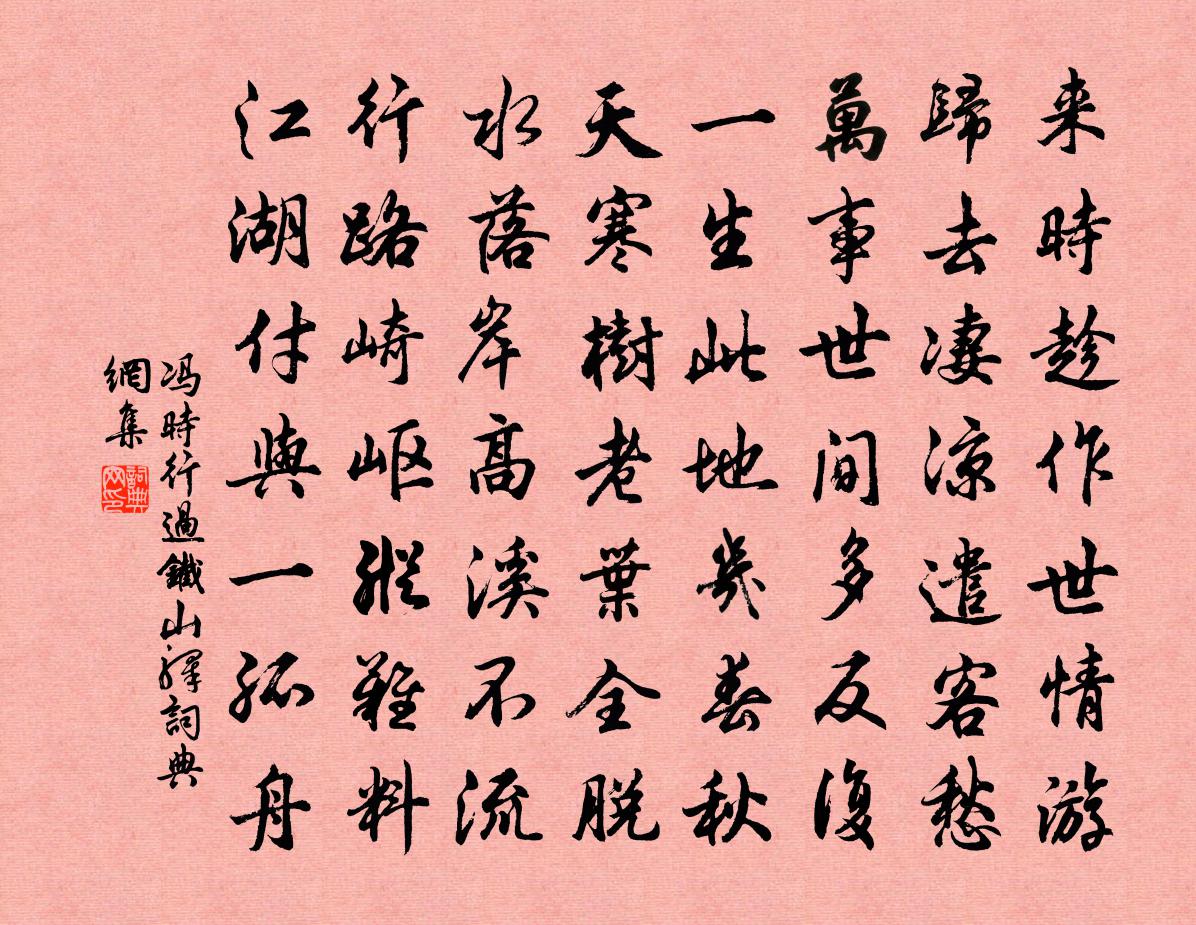 来時趁作世情游
歸去凄涼遣客愁
萬事世間多反復
一生此地幾春秋
天寒樹老葉全脱
水落岸高溪不流
行路崎岖縱難料
江湖付與一孤舟
冯時行過鐵山驛詞典
網集
詞典網印